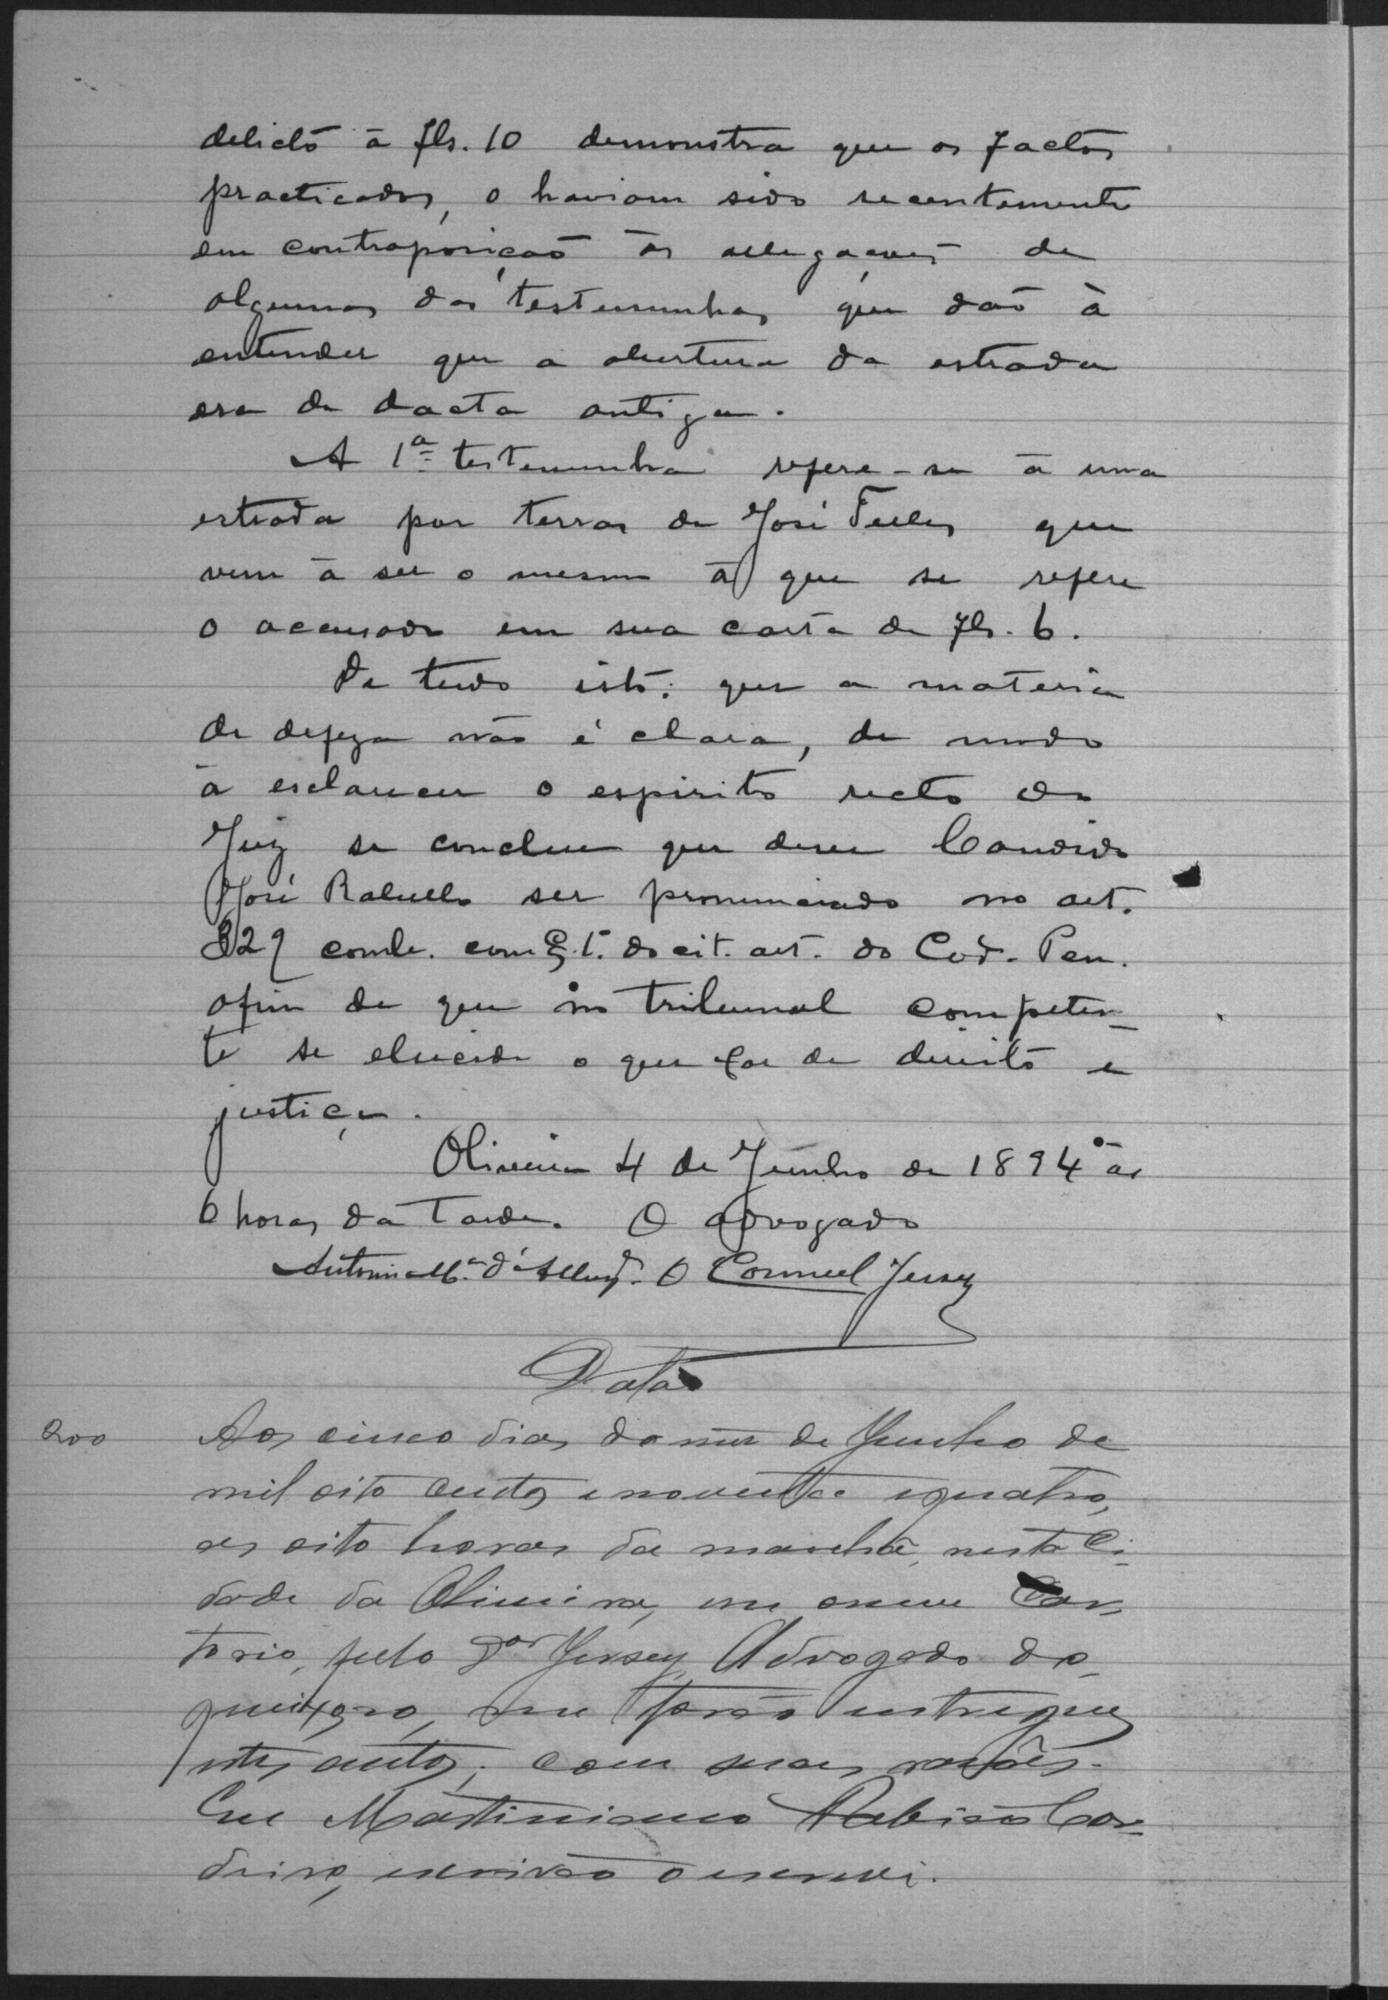 delicto à fls. 10 demonstra que os factos
practicados, o haviam sido recentemente
em contraposição às allegações de
algumas das testemunhas que dão à
entender que a abertura da estrada
era de dacta antiga.
A 1ª testemunha refere-se à uma
estrada por terras de José Telles que
vem à ser o mesmo à que se refere
o accusado em sua carta de fls. 6.
De tudo isto: que a materia
de defeza não é clara, de modo
à esclarecer o espirito recto do
Juiz se conclue que deve Candido
José Rabello ser pronunciado no art.
329 comb. com § 1º do cit. art. do Cod. Pen.
afim de que no tribunal competen-
te se elucide o que for de direito e
justiça.
Oliveira 4 de Junho de 1894 às
6 horas da Tarde. O advogado
Antonio M. d'A O Connell Jersey
Data
200
Aos cinco dias do mez de Junho de
mil oito centos e noventa e quatro,
as oito horas da manhã, nesta Ci-
dade da Oliveira, em o meu Car-
torio, pelo Dor Jersey, Advogado do
queixoso, me forão entregues
estes autos, com suas rasões.
Eu Martiniano Cor-
deiro, escrivão o escrevi.